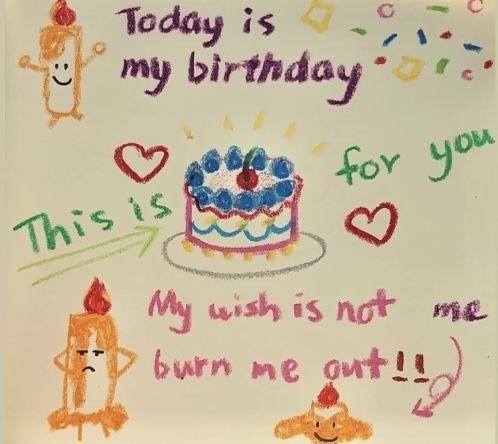 Today is
my birthday
This is
for you
My wish is not me
burn me out!!